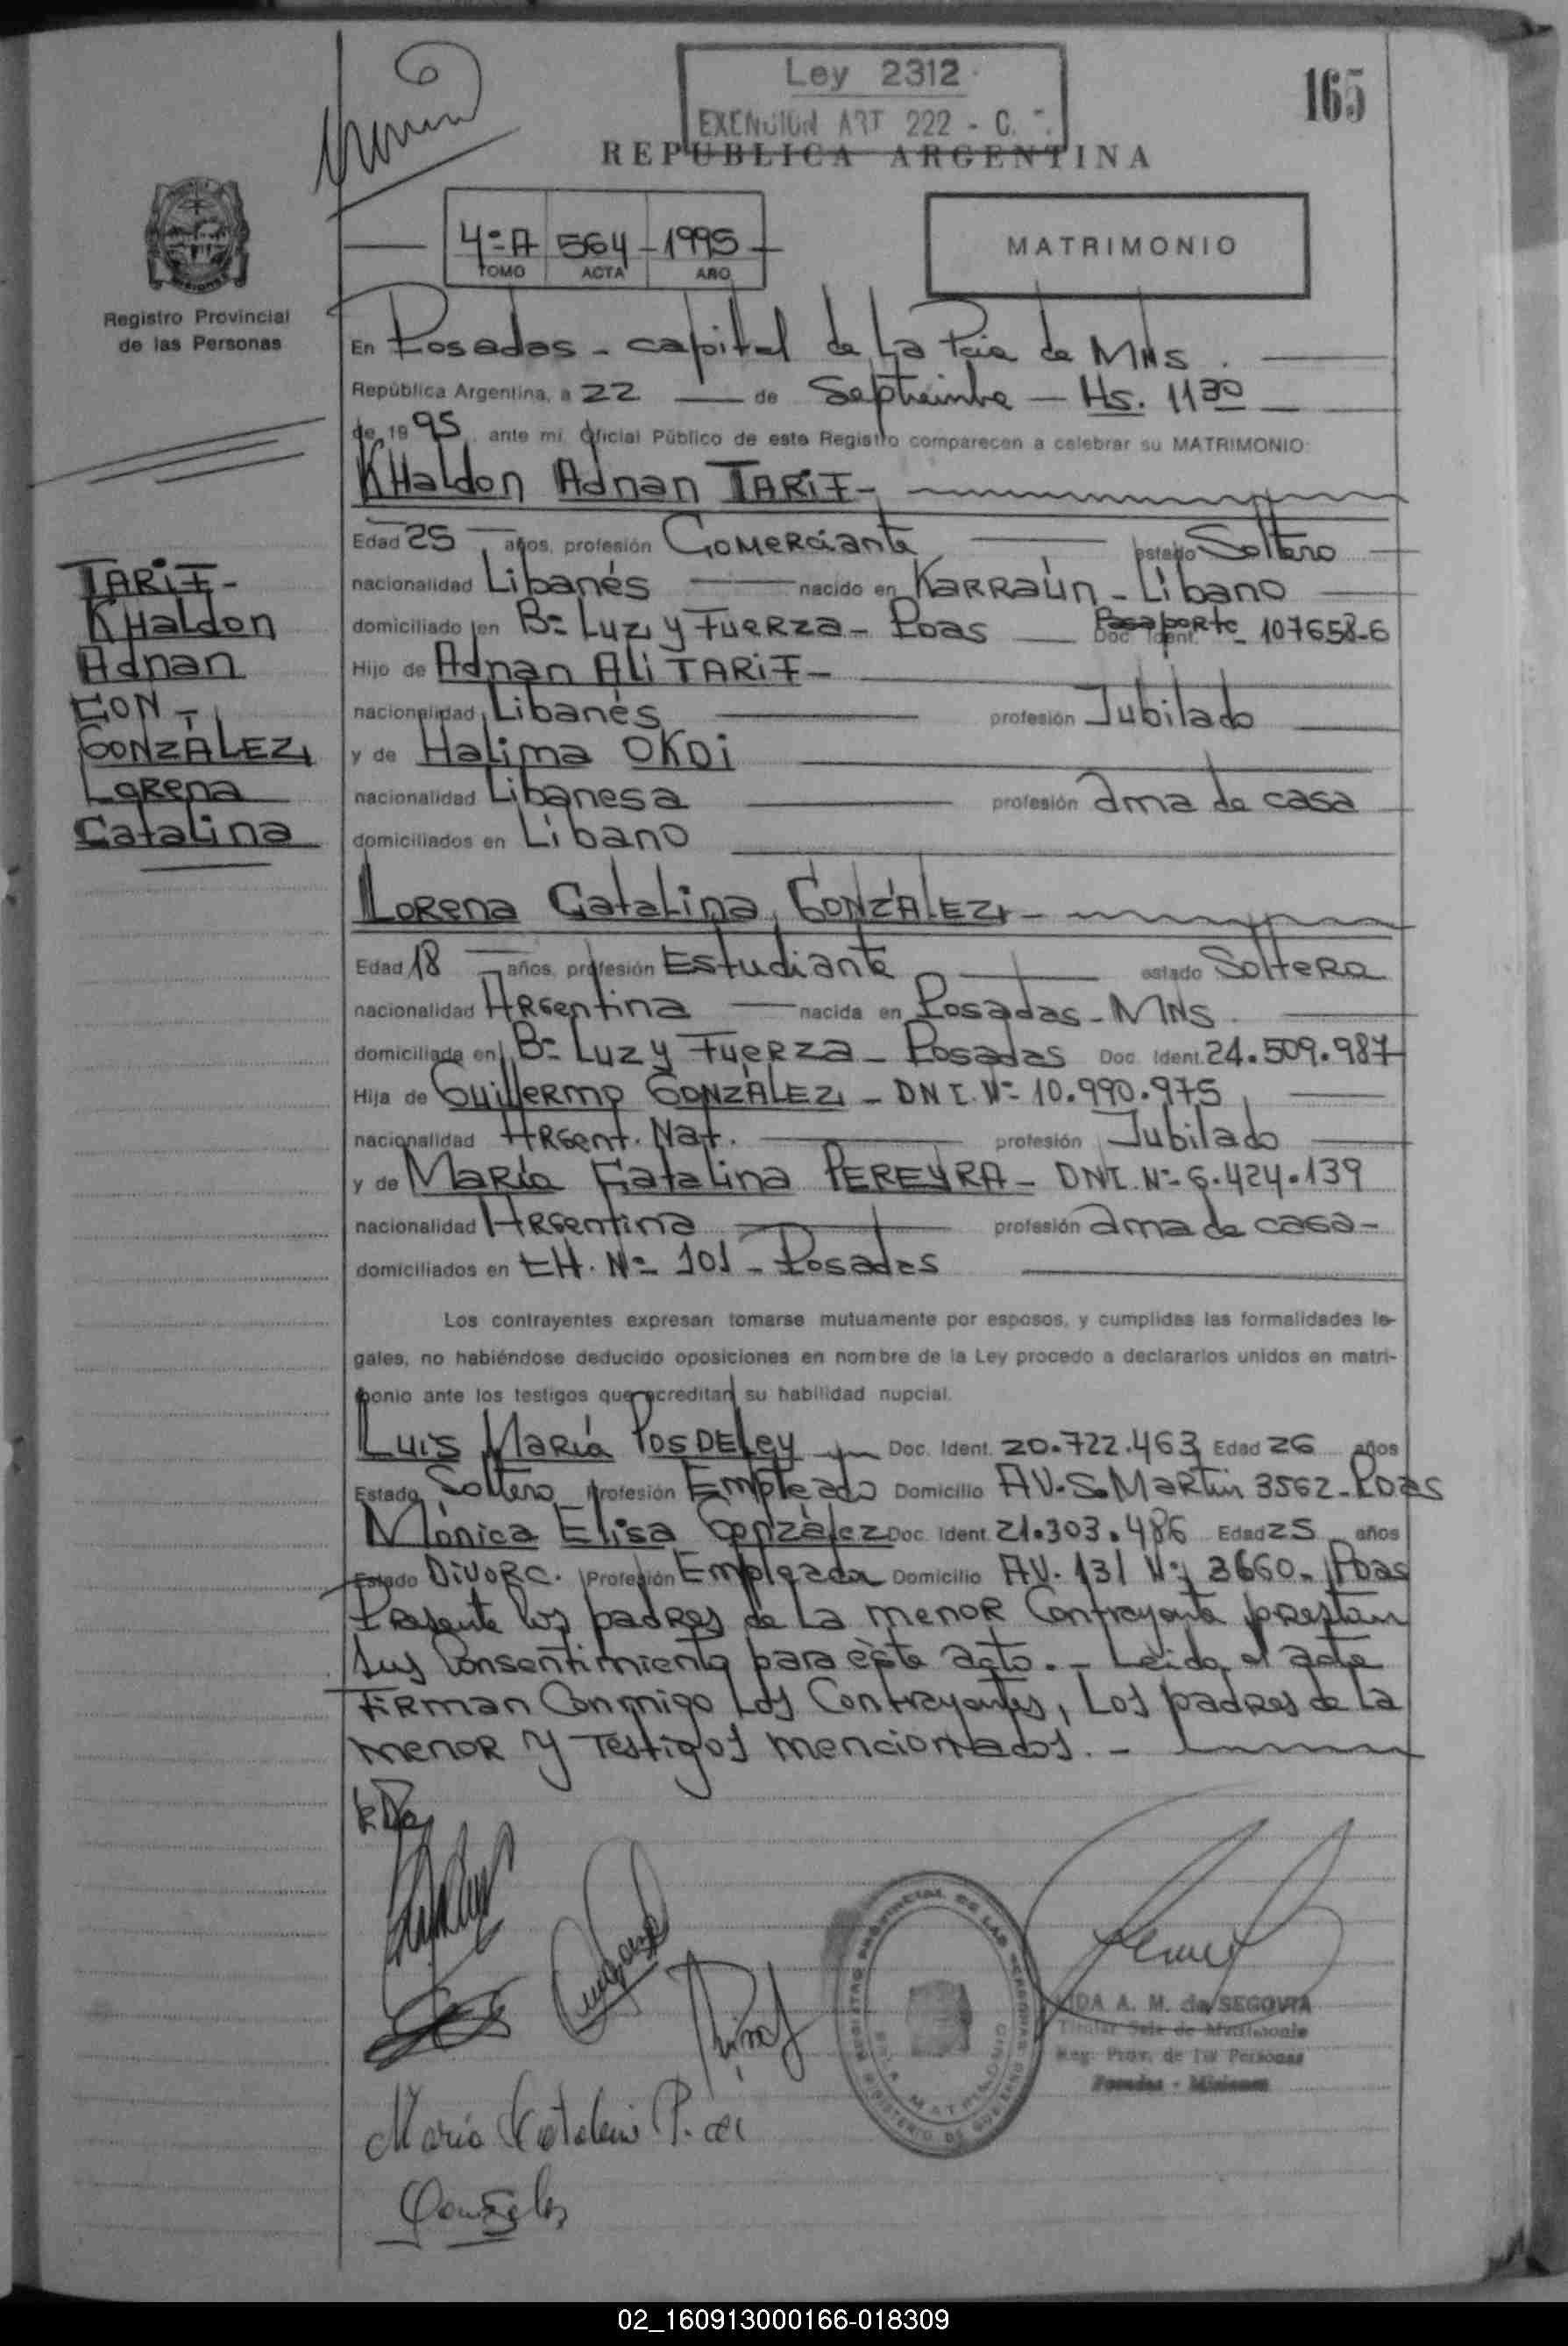 Ley 2312
EXENCION ART 222 - C.
165
REPUBLICA ARGENTINA
4º A 564 - 1995
TOMO ACTA AÑO
MATRIMONIO
Registro Provincial
de las Personas
En Posadas - capital de La Pcia de MNS.
República Argentina, a 22 de Septiembre - Hs. 11 30
de 1995, ante mi Oficial Público de este Registro comparecen a celebrar su MATRIMONIO:
KHaldon Adnan TARIF -
Edad 25 años, profesión Comerciante estado Soltero
nacionalidad Libanés nacido en Karraún - Líbano
domiciliado en Bº Luz y Fuerza - Pdas Doc. Ident. Pasaporte - 107658-6
Hijo de Adnan Ali TARIF -
nacionalidad Libanés profesión Jubilado
y de Halima OKDi
nacionalidad Libanesa profesión ama de casa
domiciliados en Líbano
TARIF -
KHaldon
Adnan
CON -
GONZÁLEZ,
Lorena
Catalina
Lorena Catalina GONZÁLEZ -
Edad 18 años, profesión Estudiante estado Soltera
nacionalidad Argentina nacida en Posadas - MNS.
domiciliada en Bº Luz y Fuerza - Posadas Doc. Ident. 24.509.987
Hija de Guillermo GONZÁLEZ - DNI. Nº 10.990.975
nacionalidad Argent. Nat. profesión Jubilado
y de María Catalina PEREYRA - DNI. Nº 6.424.139
nacionalidad Argentina profesión ama de casa -
domiciliados en CH. Nº 101 - Posadas
Los contrayentes expresan tomarse mutuamente por esposos, y cumplidas las formalidades le-
gales, no habiéndose deducido oposiciones en nombre de la Ley procedo a declararlos unidos en matri-
monio ante los testigos que acreditan su habilidad nupcial.
Luis María POSDELEY Doc. Ident. 20.722.463 Edad 26 años
Estado Soltero Profesión Empleado Domicilio AV. S. Martin 3562 - Pdas
Mónica Elisa González Doc. Ident. 21.303.486 Edad 25 años
Estado Divorc. Profesión Empleada Domicilio AV. 131 Nº 3660 - Pdas
Presente los padres de la menor Contrayente prestan
sus Consentimiento para éste acto. - Leida el acta
Firman Conmigo Los Contrayentes, Los padres de La
menor y Testigos mencionados. -
REGISTRO PROVINCIAL DE LAS PERSONAS
MINISTERIO DE GOBIERNO
SALA MATRIMONIO
A. M. de SEGOVIA
Titular Sala de Matrimonio
Reg. Prov. de las Personas
Posadas - Misiones
María Catalina P. de
González
02_160913000166-018309